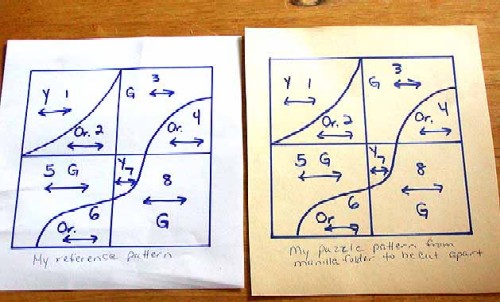 Y 1
G 3
Or. 2
Or. 4
5 G
Y 7
8
G
6
Or.
My reference pattern
Y 1
G 3
Or. 2
Or. 4
5 G
Y 7
8
G
6
Or
My puzzle pattern from
manilla folder to be cut apart